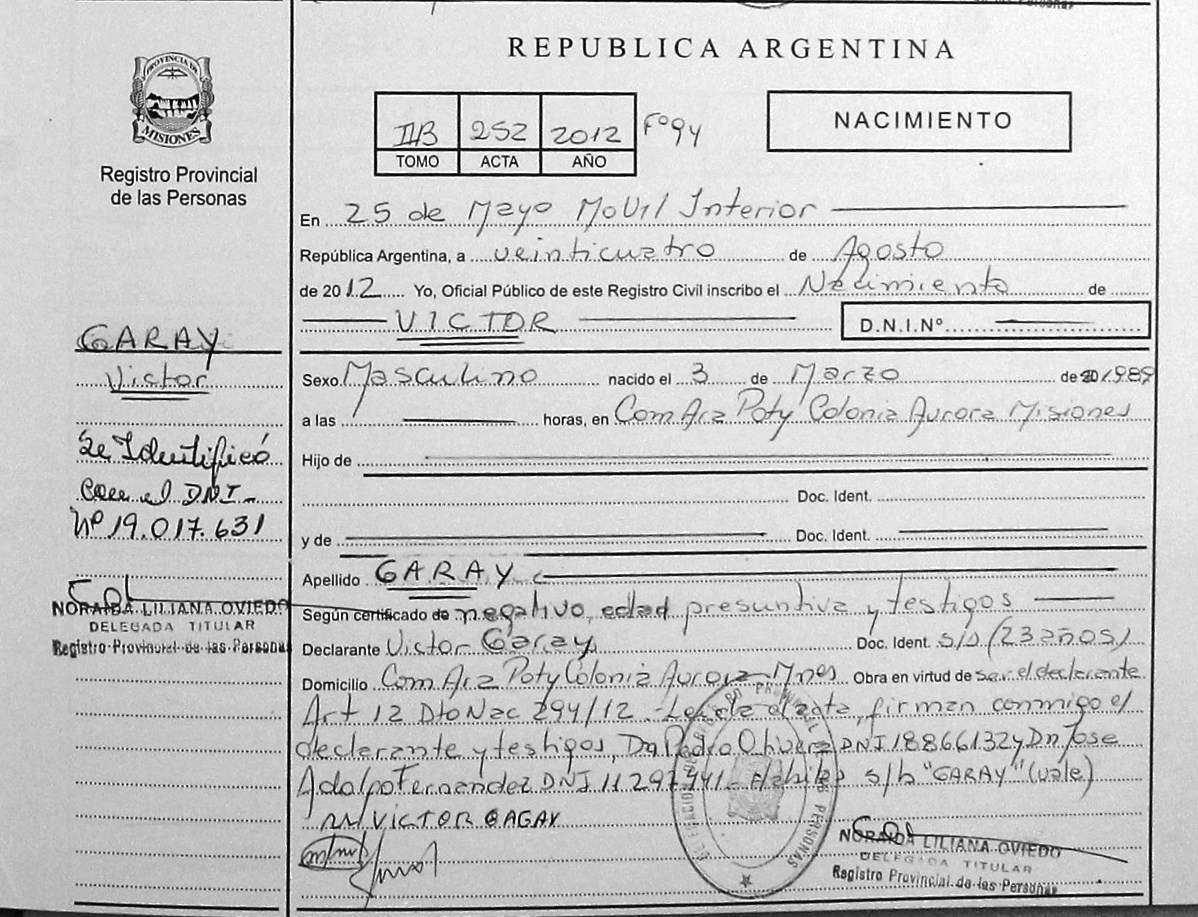 PROVINCIA DE
MISIONES
Registro Provincial
de las Personas
GARAY
Victor
Se Identificó
con el DNI
Nº 19.017.631
NORAIDA LILIANA OVIEDO
DELEGADA TITULAR
Registro Provincial de las Personas
REPUBLICA ARGENTINA
IIB 252 2012 Fº 94
TOMO ACTA AÑO
NACIMIENTO
En 25 de Mayo Movil Interior
República Argentina, a veinticuatro de Agosto
de 2012 Yo, Oficial Público de este Registro Civil inscribo el Nacimiento de
VICTOR D.N.I.Nº
Sexo Masculino nacido el 3 de Marzo de 1989
a las horas, en Com Ara Poty Colonia Aurora Misiones
Hijo de
Doc. Ident.
y de Doc. Ident.
Apellido GARAY
Según certificado de negativo, edad presuntiva y testigos
Declarante Victor Garay Doc. Ident. s/d (23 años)
Domicilio Com Ara Poty Colonia Aurora Mnes Obra en virtud de ser el declarante
Art 12 Dto Nac 294/12 - Leida el acta, firman conmigo el
declarante y testigos, Dn Pedro Olivera DNI 18866132 y Dn Jose
Adolfo Fernandez DNI 11297441 s/b "GARAY" (vale)
VICTOR GAGAY
NORAIDA LILIANA OVIEDO
DELEGADA TITULAR
Registro Provincial de las Personas